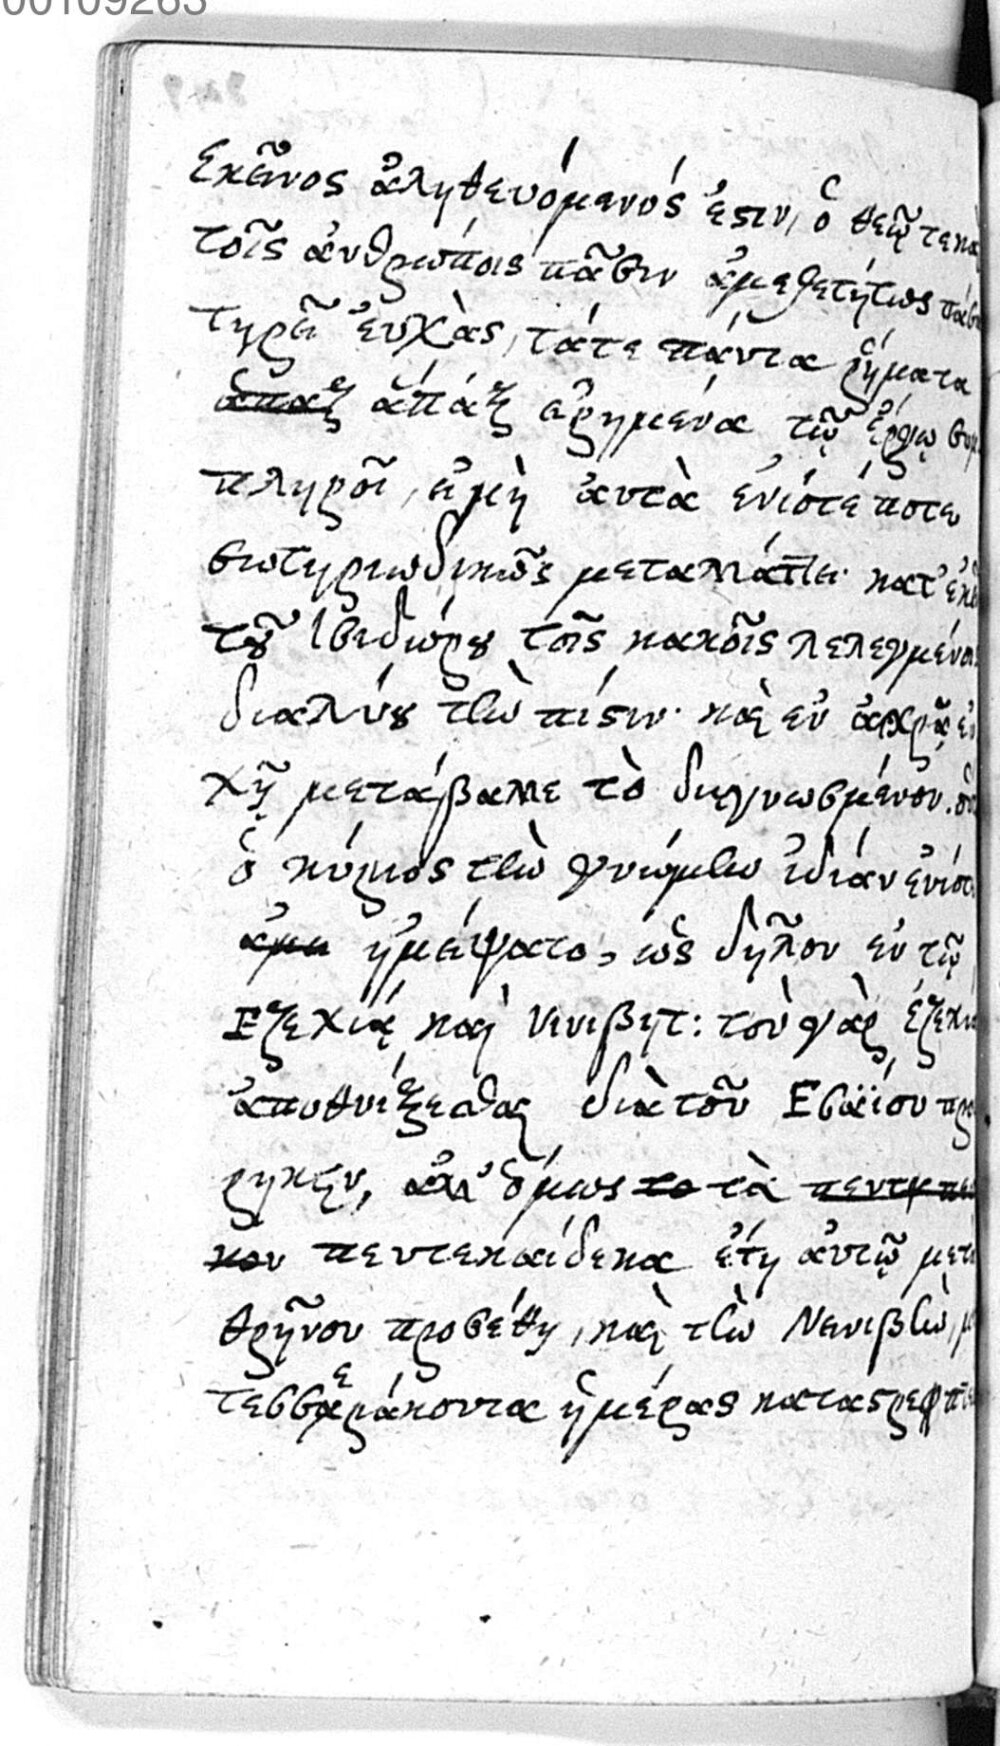 00109263
Εκεῖνος ἀληθευόμενός ἐστιν, ὁ θεῷ τε καὶ
τοῖς ἀνθρώποις πᾶσιν ἀμεθετήτως
τηρεῖ ἐυχὰς, τάτε πάντα ῥήματα
ἅπαξ ἁπάξ εἰρημένα τῷ ἔργῳ συμ
πληροῖ, εἰμὴ ἀυτὰ ἐνίοτέ ποτε
σωτηριωδικῶς μεταλλάττει· κατ'
τοῦ Ισιδώρου τοῖς κακοῖς λελεγμένοις
διαλύου τὴν πίστιν· καὶ ἐν ἀισχρᾷ ἐυ
χῇ μετάβαλλε τὸ διεγνωσμένον.
ὁ κύριος τὴν γνώμην ἰδιάν ἐνίοτε
ἀμει ἠμείψατο, ὡς δῆλον ἐν τῷ
Εζεχιᾷ καὶ Νινιβητ: τὸν γὰρ ἐζεχι
ἀποθνίξεσθαι διὰ τοῦ Εσαΐου προ
ρηκεν, ἀλλ' ὅμως το τὰ
κον πεντεκαίδεκα ἔτη ἀυτῷ μετὰ
θρῆνον προσέθη, καὶ τὴν Νενιβὴν,
τεσσαράκοντα ἡμέρας καταστρεφ